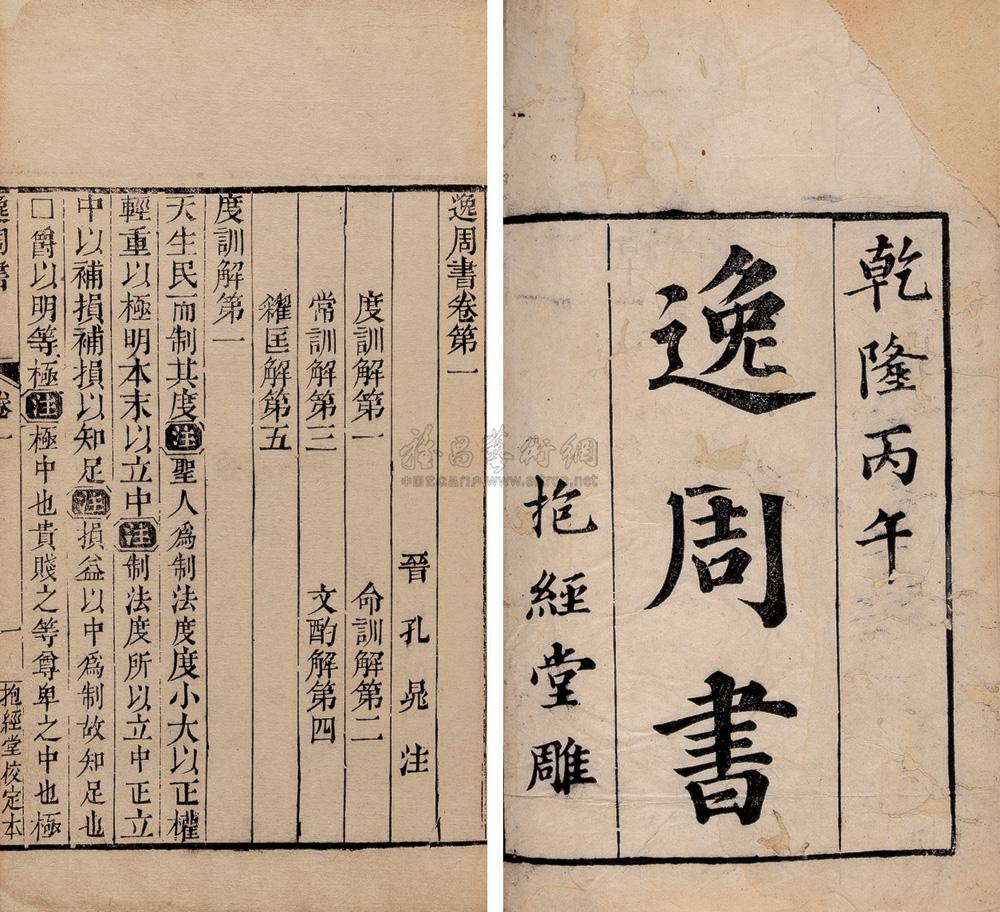 乾隆丙午
逸周書
抱經堂雕
逸周書卷第一
晉孔晁注
度訓解第一 命訓解第二
常訓解第三 文酌解第四
糴匡解第五
度訓解第一
天生民而制其度注聖人爲制法度度小大以正權
輕重以極明本末以立中注制法度所以立中正立
中以補損補損以知足注損益以中爲制故知足也
□爵以明等極注極中也貴賤之等尊卑之中也極
逸周書
卷一
一
抱經堂校定本
雅昌藝術網
中国艺术品门户www.artron.net